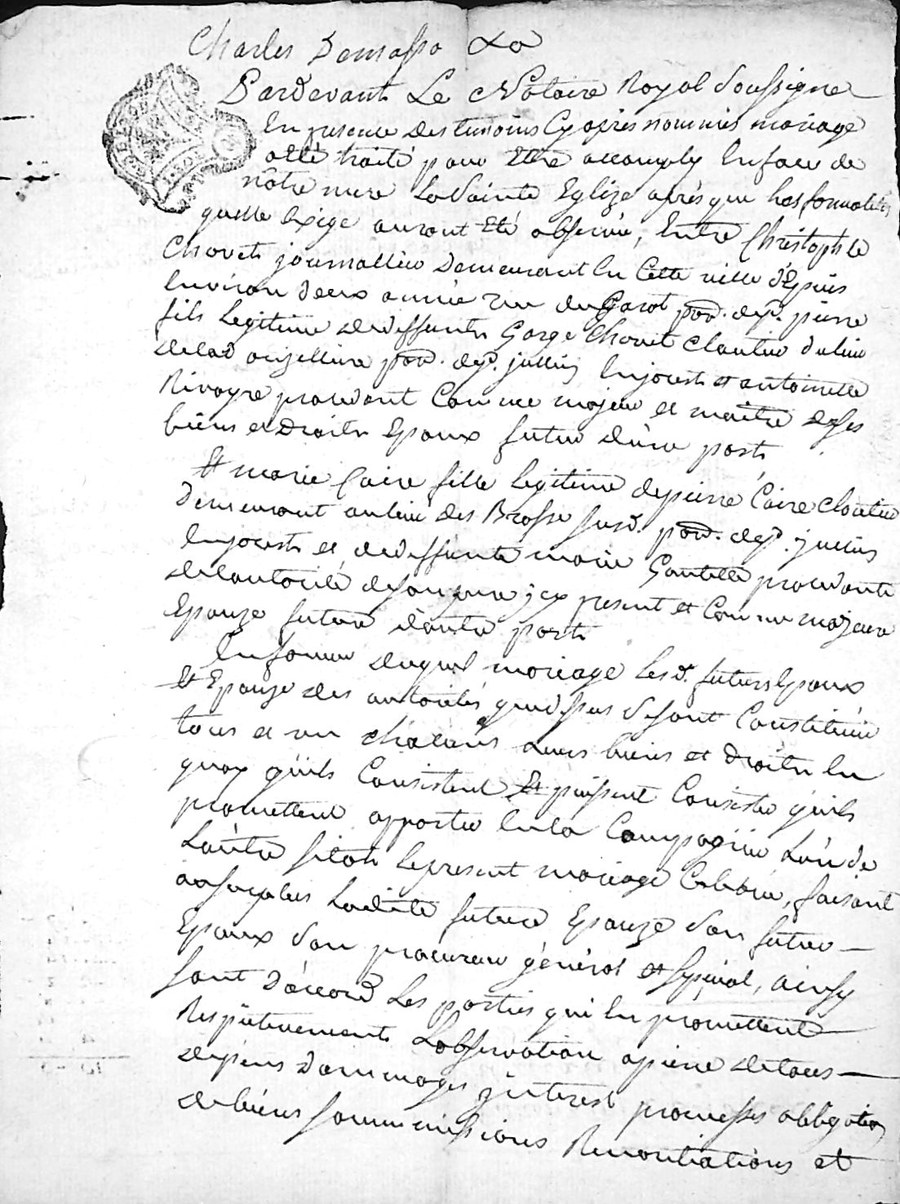 Charles Demasso
Pardevant Le Notaire Royal Soussigne
En presence des temoins Cy apres nommés mariage
a été traité pour Etre accomply En face de
notre mere La Sainte Eglize aprés que les formalités
quelle Exige auront Eté observée, Entre Christophle
Chovet journallier Demeurant En Cette ville dEpuis
Environ deux année rue du Garot par. de St. pierre
fils Legitime de deffunt George Chovet Clautier du lieu
de la par. de St. jullien En jarest et antoinette
Rivoyre procedant Comme majeur et maitre de ses
biens et Droits Epoux futur d'une part
Et marie Caire fille legitime de pierre Caire Cloutier
demeurant au lieu des Brosse susd. par. de St. jullien
En jarest et de deffunte marie procedante
de lautorité de son pere jcy present et Comme majeure
Epouze future d'autre part
En faveur duquel mariage Lesd. futurs Epoux
Et Epouze des autorités que dessus se sont Constitués
tous et un chacuns Leurs biens et Droits En
quoy qu'ils Consistent Et puissent Consister qu'ils
promettent apporter En la Compagnie L'un de
L'autre sitot le present mariage Celebré, faisant
au surplus Ladite future Epouze son futur
Epoux son procureur général et spécial, ainsy
sont D'accord Les parties qui En promettent
Respectivement L'observation a peine de tous
depens Dommages jnterest promesses obligation
de biens soummissions Renontiations et